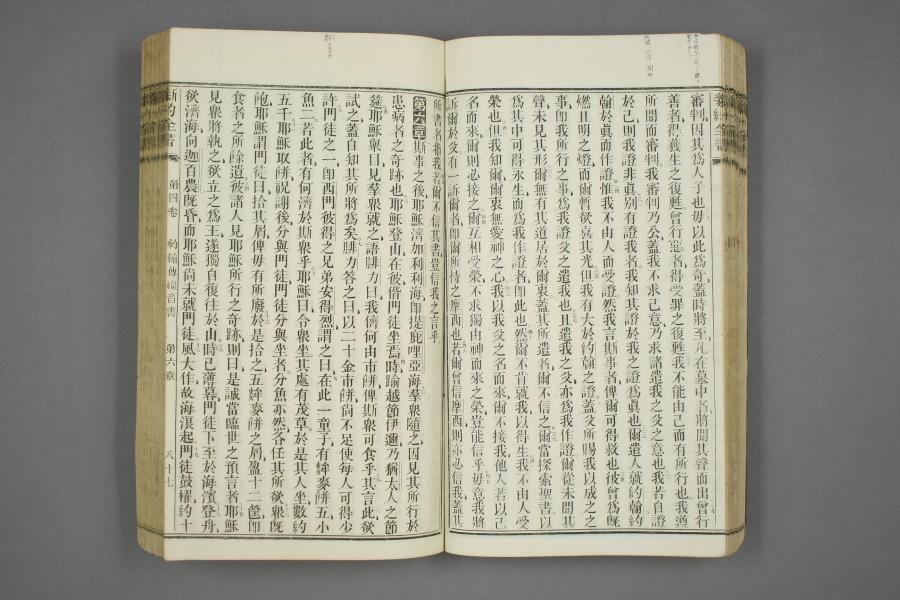 審判因其爲人子也毋以此爲奇蓋時將至凡在墓中者將聞其聲而出曾行
善者得獲生之復甦曾行惡者得受罪之復甦我不能由己而有所行也我遵
所聞而審判我審判乃公蓋我不求己意乃求諸遣我之父之意也我若自證
於己則我證非眞別有證我者我知其證於我之證爲眞也爾遣人就約翰約
翰於眞而作證惟我不由人而受證然我言斯事者俾爾可得救也彼曾爲旣
燃且明之燈而爾暫欲喜其光但我有大於約翰之證蓋父所賜我以成之之
事卽我所行之事爲我證父之遣我也且遣我之父亦爲我作證爾從未聞其
聲未見其形爾無有其道居於爾衷蓋其所遣者爾不信之爾當探索聖書以
爲其中可得永生而爲我作證者卽此也然爾不肯就我以得生我不由人受
榮也但我知爾爾衷無愛神之心我以我父之名而來爾不接我他人若以己
名而來爾則必接之爾互相受榮不求獨由神而來之榮豈能信乎毋意我將
訴爾於父有一訴爾者卽爾所恃之摩西也若爾曾信摩西則亦必信我蓋其
所書者指我若爾不信其書豈信我之言乎
第六章斯事之後耶穌濟加利利海卽提庇哩亞海羣衆隨之因見其所行於
患病者之奇跡也耶穌登山在彼偕門徒坐焉時踰越節伊邇乃猶太人之節
筵耶穌舉目見羣衆就之語腓力曰我儕何由市餅俾斯衆可食乎其言此欲
試之蓋自知其所將爲矣腓力答之曰以二十金市餅尙不足使每人可得少
許門徒之一卽西門彼得之兄弟安得烈謂之曰在此一童子有麰麥餅五小
魚二若此者有何濟於斯衆乎耶穌曰令衆坐其處有茂草於是其人坐數約
五千耶穌取餅祝謝後分與門徒門徒分與坐者分魚亦然各任其所欲衆旣
飽耶穌謂門徒曰拾其屑俾毋有所廢於是拾之五麰麥餅之屑盈十二筐卽
食者之所餘遺彼諸人見耶穌所行之奇跡則曰是誠當臨世之預言者耶穌
見衆將執之欲立之爲王遂獨自復往於山時已薄暮門徒下至於海濱登舟
欲濟海向迦百農旣昏而耶穌尙未就門徒風大作故海浪起門徒鼓櫂約十
新約全書 第四卷 約翰傳福音書 第六章 八十七